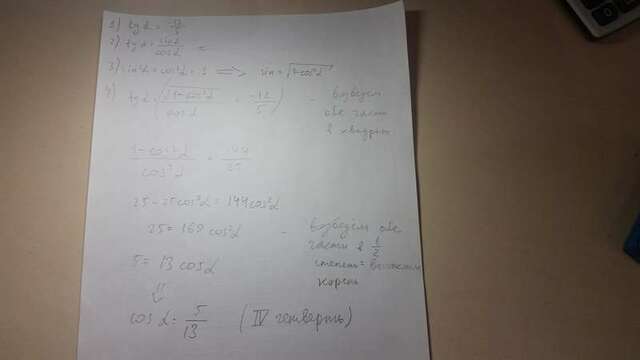 1) tg α = -12/5
2) tg α = sin α / cos α =
3) sin²α + cos²α = 1 ⟹ sin = √1-cos²α
4) tg α = (√1-cos²α / cos α = -12/5) - возведём
обе части
в квадрат
1-cos²α / cos²α = 144/25
25-25cos²α = 144cos²α
25 = 169 cos²α - возведём обе
части в 1/2
степень =
корень
5 = 13 cos α
⇓
cos α = 5/13 (IV четверть)